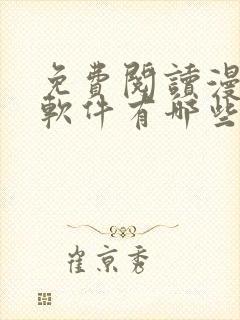 免費閱讀漫
軟件有哪些
崔京秀